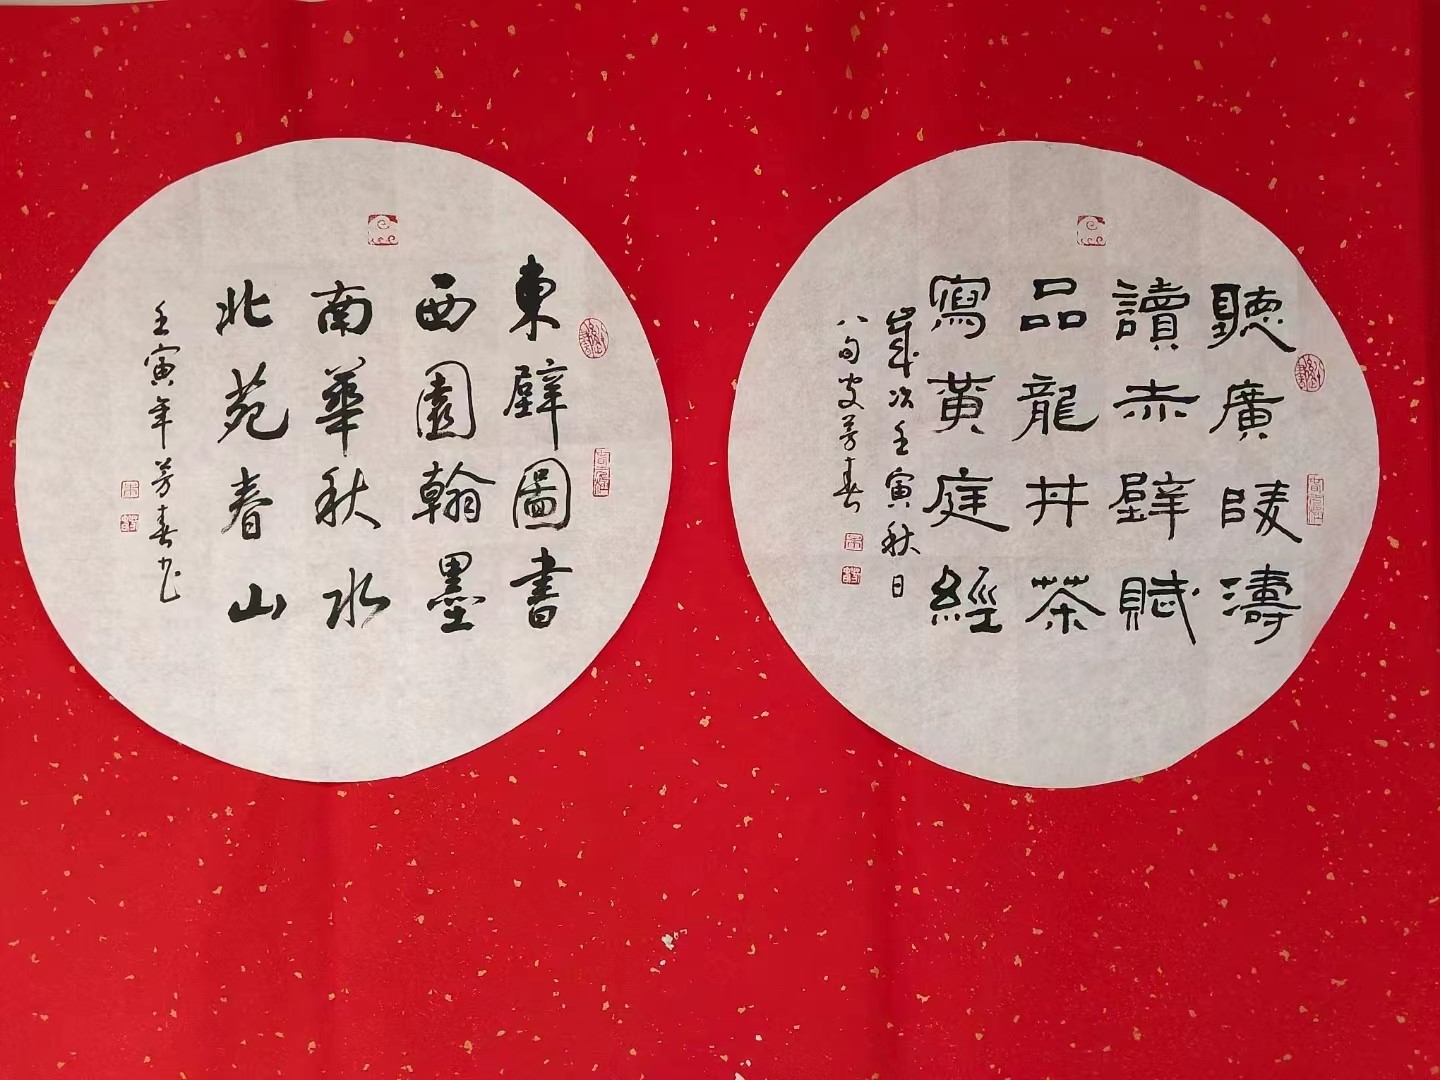 聽廣陵濤
讀赤壁賦
品龍井茶
寫黃庭經
歲次壬寅秋日
八旬叟芳春
東壁圖書
西園翰墨
南華秋水
北苑春山
壬寅年芳春书